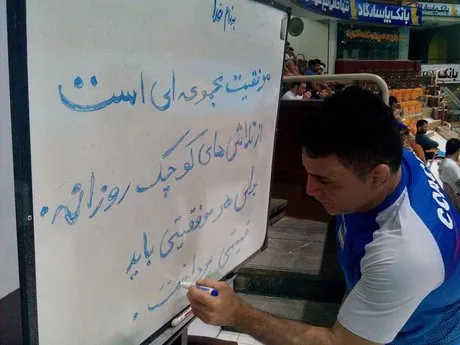 بنام خدا
موفقیت مجموعه ای است
از تلاش های کوچک روزانه.
برای هر موفقیتی باید
قیمتی پرداخت.
بانک پاسارگاد
بانک پاسارگاد